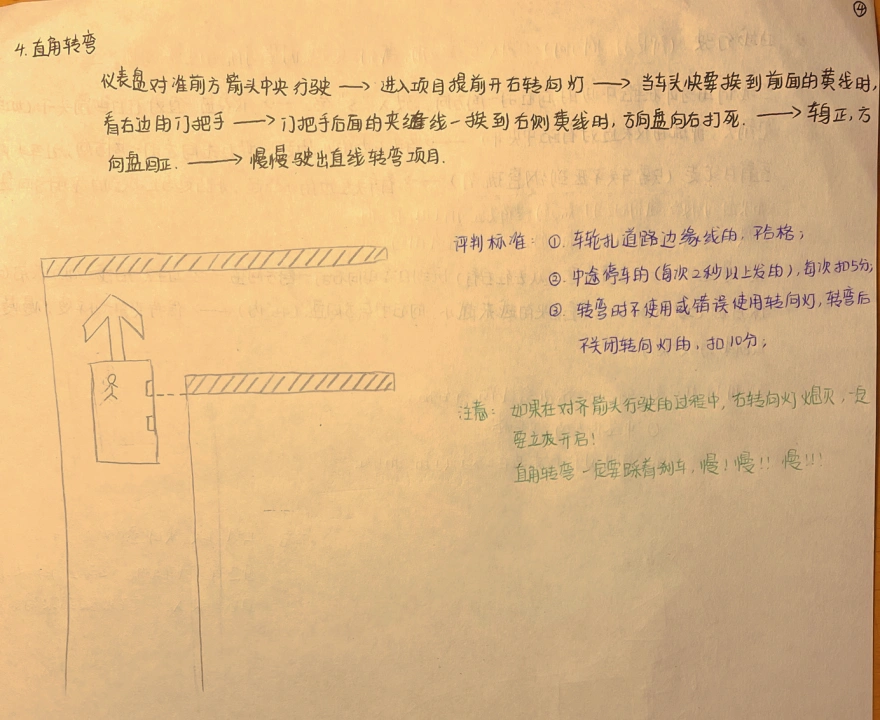 ④
4. 直角转弯
仪表盘对准前方箭头中央行驶 → 进入项目提前开右转向灯 → 当车头快要挨到前面的黄线时,
看右边的门把手 → 门把手后面的夹缝线一挨到右侧黄线时,方向盘向右打死. → 车身正,方
向盘回正. → 慢慢驶出直线转弯项目.
评判标准: ①. 车轮轧道路边缘线的,不合格;
②. 中途停车的(每次2秒以上发的),每次扣5分;
③ 转弯时不使用或错误使用转向灯,转弯后
不关闭转向灯的,扣10分;
注意: 如果在对齐箭头行驶的过程中,右转向灯熄灭,一定
要立放开启!
直角转弯一定要踩着刹车,慢!慢!!慢!!!